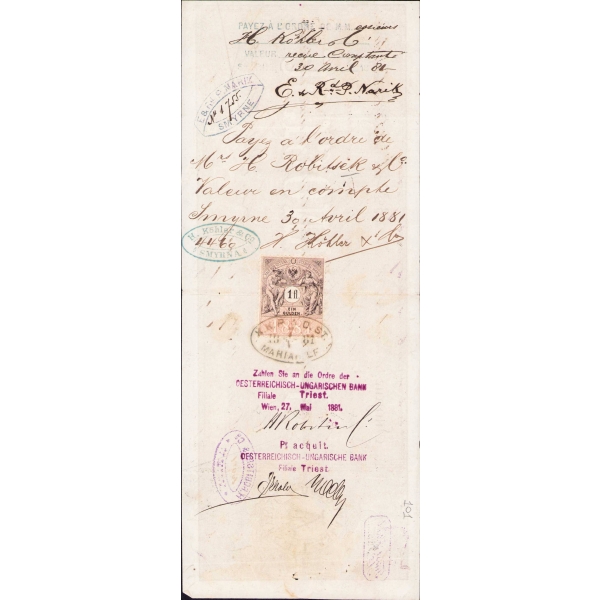 PAYEZ À L'ORDRE DE M.M.
H. Köhler & Cº
VALEUR reçue Comptant
20 Avril 81
E. & R. P. Narik
E. & R. P. NARIK
Nº 1755
SMYRNE
Payez à l'ordre de
Mrs H. Robitsek & Co
Valeur en compte
Smyrne 30 Avril 1881
H. Köhler & Co
SMYRNA
4466
H. Köhler & Co
1 fl
EIN
GULDEN
MARIAHILF
Zahlen Sie an die Ordre der
OESTERREICHISCH-UNGARISCHEN BANK
Filiale Triest.
Wien, 27. Mai 1881.
HRobitsek C.
Pr acquit.
OESTERREICHISCH-UNGARISCHE BANK
Filiale Triest.
101